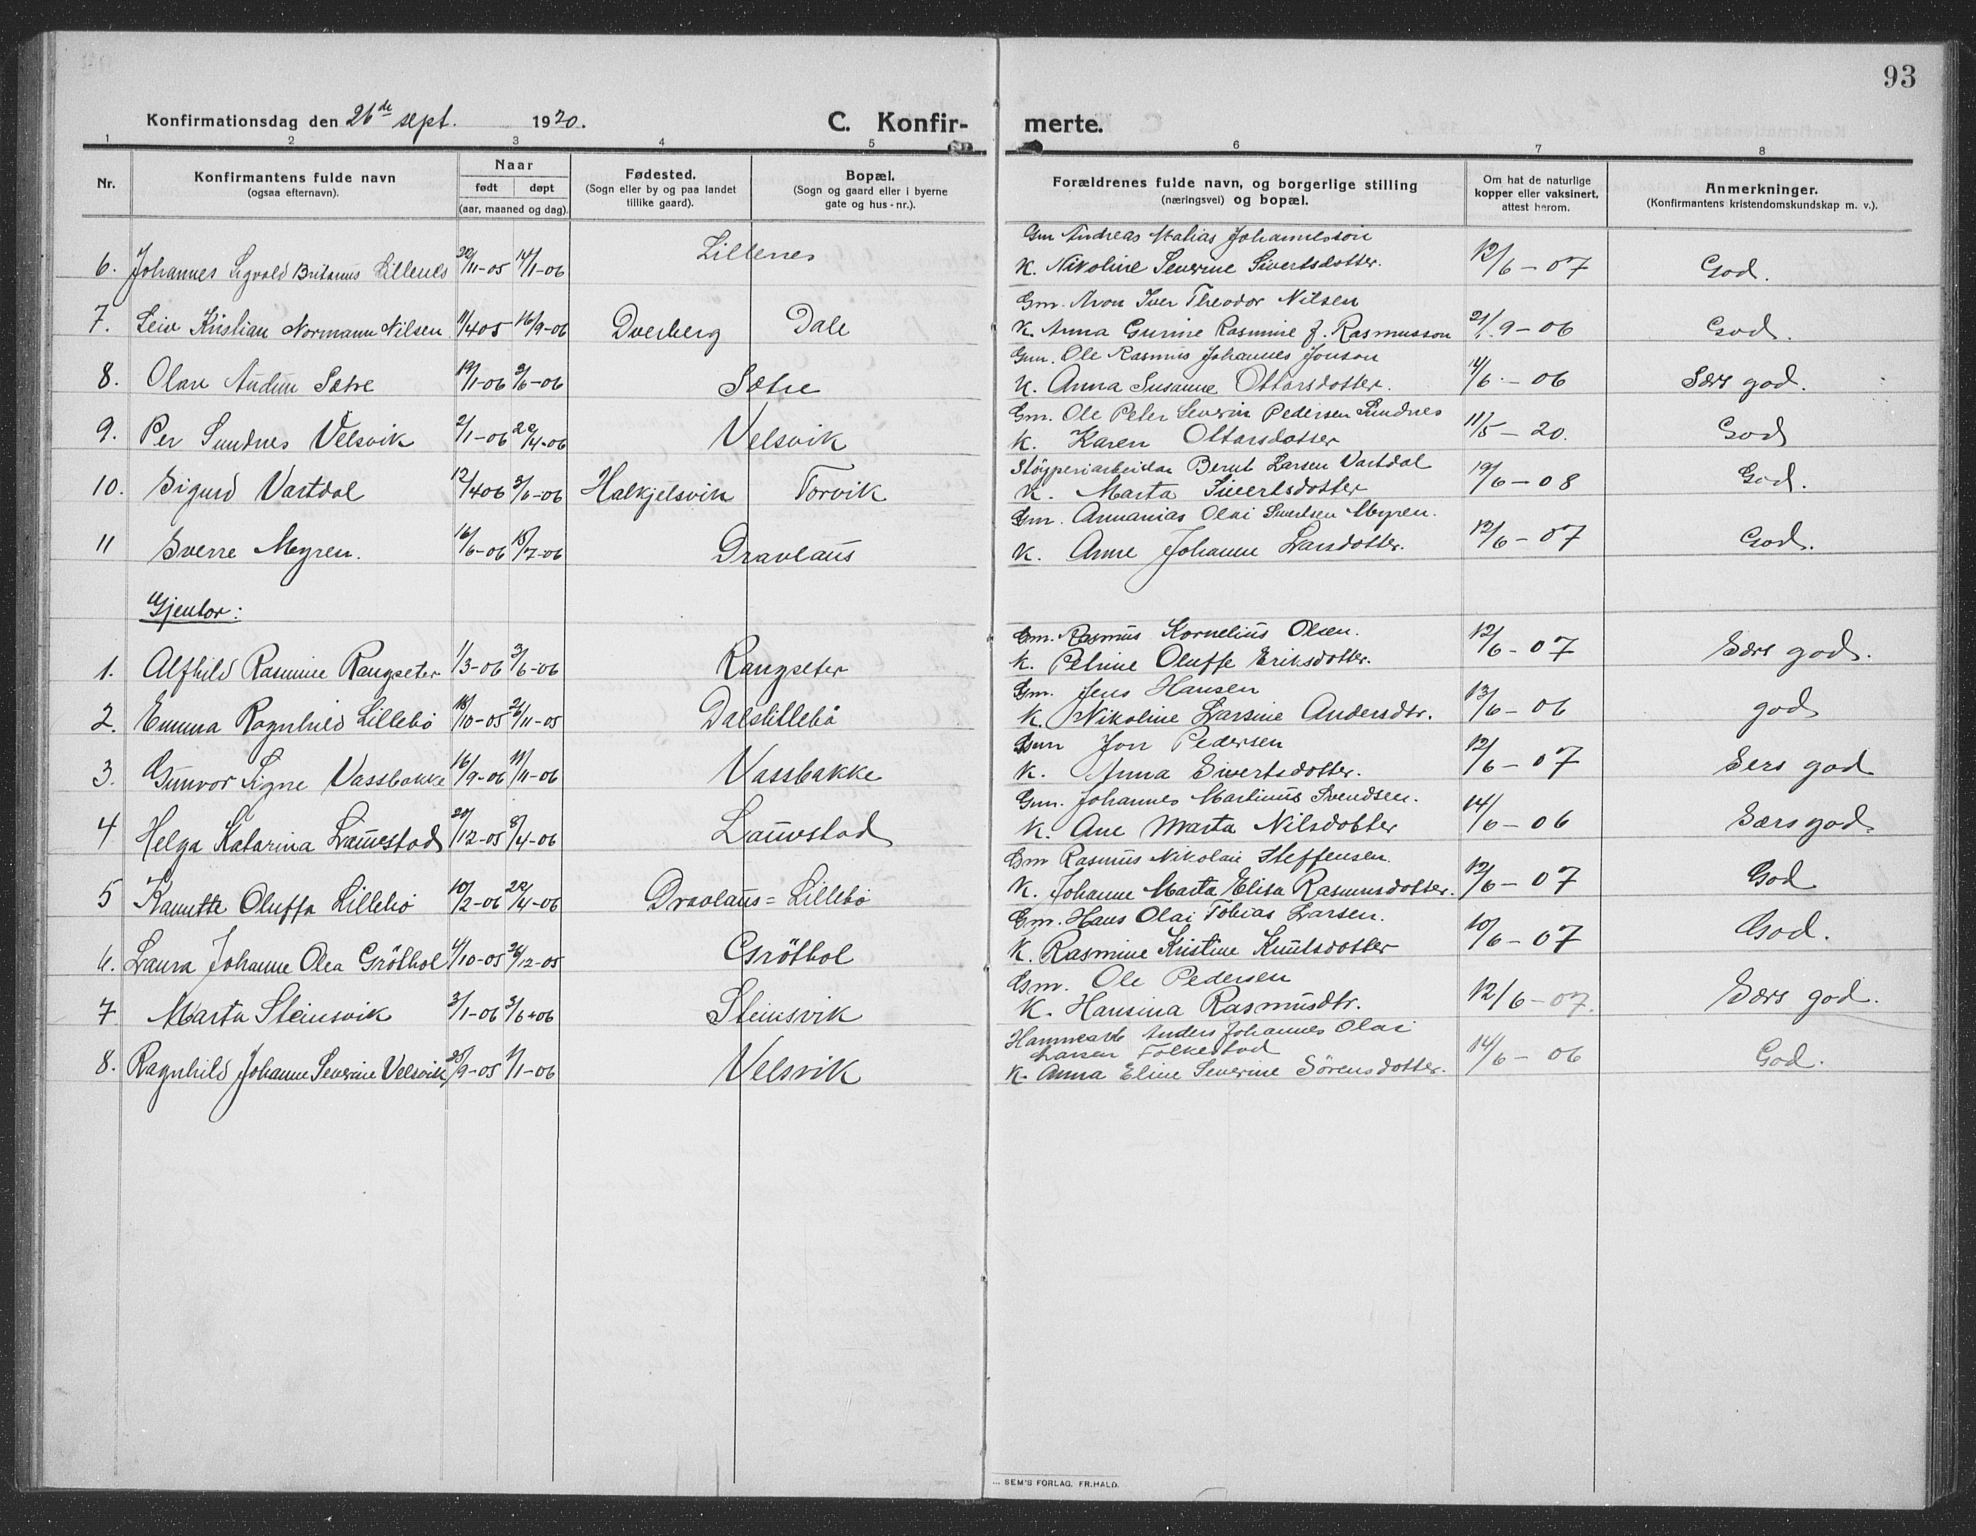 93
Konfirmationsdag den 26de sept. 1920.
C. Konfir-
merte.
1 2 3 4 5 6 7 8
Nr.
Konfirmantens fulde navn
(ogsaa efternavn).
Naar
født døpt
(aar, maaned og dag).
Fødested.
(Sogn eller by og paa landet
tillike gaard).
Bopæl.
(Sogn og gaard eller i byerne
gate og hus-nr.).
Forældrenes fulde navn, og borgerlige stilling
(næringsvei) og bopæl.
Om hat de naturlige
kopper eller vaksinert,
attest herom.
Anmerkninger.
(Konfirmantens kristendomskundskap m. v.).
Gm Andreas Matias Johannesson
6. Johannes Sigvald Britanus Lillenes 20/11-05 14/1-06 Lillenes K. Nikoline Severine Sivertsdotter. 12/6-07 God.
Gm. Aron Iver Theodor Nilsen
7. Leiv Kristian Normann Nilsen 11/4 05 16/9-06 Dverberg Dale K. Anna Gurine Rasmine f. Rasmusson 21/9-06 God.
Gm. Ole Rasmus Johannes Jonson
8. Olav Audun Sætre 19/1-06 3/6-06 Sætre K. Anna Susanne Ottarsdotter. 14/6-06 Særs god.
Gm. Ole Peter Severin Pedersen Sundnes
9. Per Sundnes Velsvik 2/1-06 22/4-06 Velsvik K. Karen Ottarsdotter 11/5-20. God
Støyperiarbeidar Bernt Larsen Vartdal
10. Sigurd Vartdal 12/4 06 3/6-06 Halkjelsvik Torvik K. Marta Sivertsdotter 19/6-08 God.
Gm. Annanias Olai Sivertsen Myren.
11 Sverre Myren. 16/6-06 15/7-06 Dravlaus K. Anne Johanne Larsdotter. 12/6-07 God.
Gjentor:
Gm. Rasmus Kornelius Olsen.
1. Alfhild Rasmine Rangseter 1/3-06 3/6-06 Rangseter K. Petrine Oluffe Eriksdotter. 12/6-07 Særs god.
Gm. Jens Hansen
2. Emma Ragnhild Lillebø 18/10-05 26/11-05 Dalslillebø K. Nikoline Larsine Andersdtr. 13/6-06 god
Gm Jon Pedersen
3. Gunvor Signe Vassbakke 16/9-06 11/11-06 Vassbakke K. Anna Sivertsdotter. 12/6-07 Sers god
Gm. Johannes Martinus Svendsen.
4 Helga Katarina Lauvstad 20/12-05 8/4-06 Lauvstad K. Ane Marta Nilsdotter 14/6-06 Særs god.
Gm Rasmus Nikolai Steffensen.
5 Kanutte Oluffa Lillebø 10/2-06 22/4-06 Dravlaus=Lillebø K. Johanne Marta Elisa Rasmusdotter. 12/6-07 God
Gm. Hans Olai Tobias Larsen.
6. Laura Johanne Olea Grøthol 4/10-05 26/12-05 Grøthol K. Rasmine Kristine Knutsdotter 10/6-07 God.
Gm. Ole Pedersen
7 Marta Steinsvik 3/1-06 3/6-06 Steinsvik K. Hansina Rasmusdtr. 12/6-07. Særs god.
Anders Johannes Olai
Larsen Folkestad
8. Ragnhild Johanne Severine Velsvik 25/9-05 1/1-06 Velsvik K. Anna Eline Severine Sørensdotter. 14/6-06 God.
SEM'S FORLAG. FR.HALD.